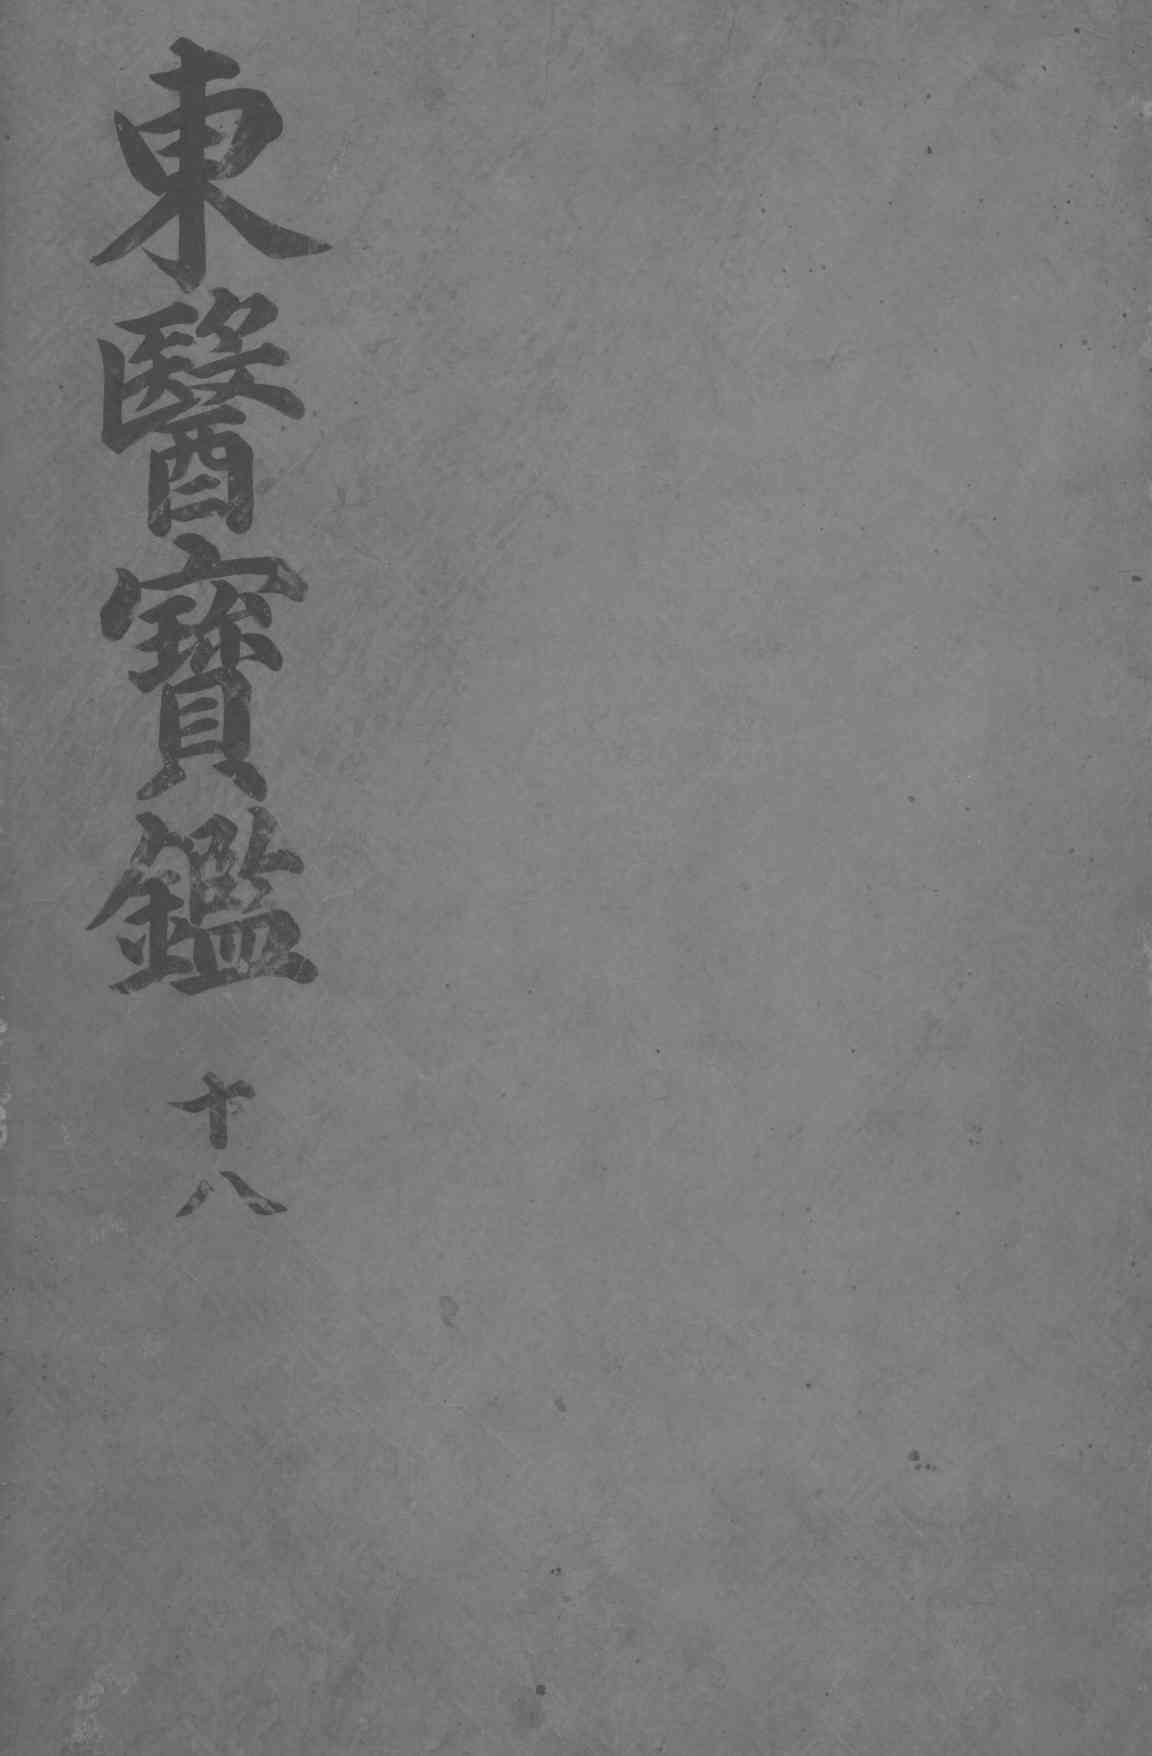 東醫寶鑑 十八